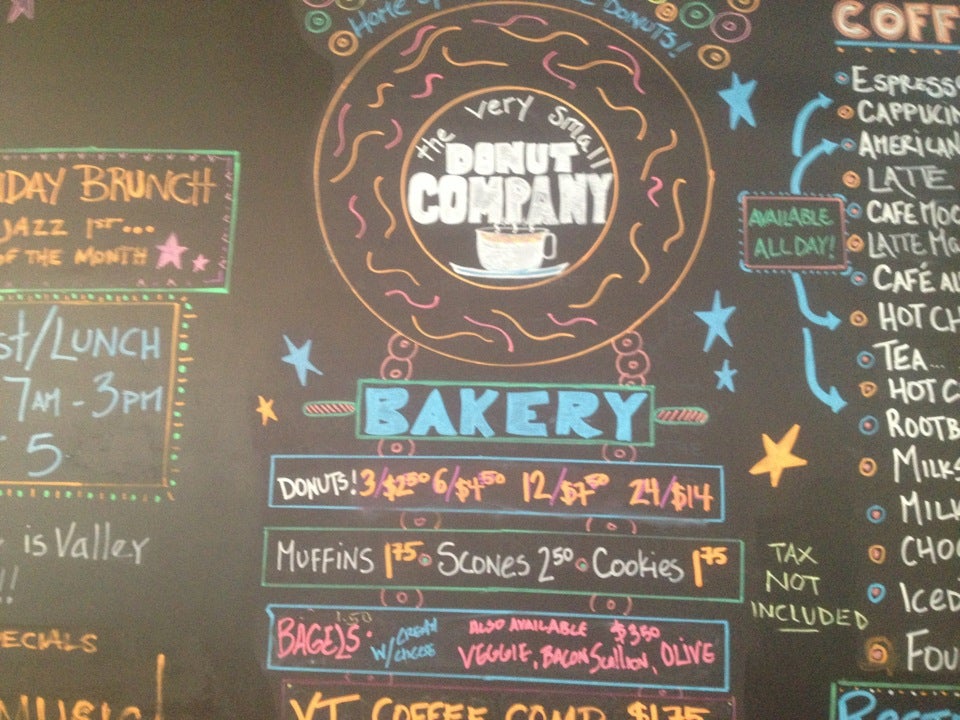 Home
DONUTS!
the very small
DONUT
COMPANY
IDAY BRUNCH
JAZZ 1ST...
OF THE MONTH
st/LUNCH
7AM - 3PM
5
is Valley
!!
PECIALS
MUSIC!
BAKERY
DONUTS! 3/$2.50 6/$4.50 12/$7.50 24/$14
MUFFINS 1.75 SCONES 2.50 COOKIES 1.75
BAGELS 1.50 W/CREAM CHEESE ALSO AVAILABLE $3.50
VEGGIE, BACON SCALLION, OLIVE
VT COFFEE COMP $1.75
TAX
NOT
INCLUDED
AVAILABLE
ALL DAY!
COFF
ESPRESSO
CAPPUCIN
AMERICAN
LATTE
CAFE MOC
LATTE MA
CAFÉ AU
HOT CH
TEA...
HOT C
ROOTB
MILKS
MILK
CHOC
ICED
FOU